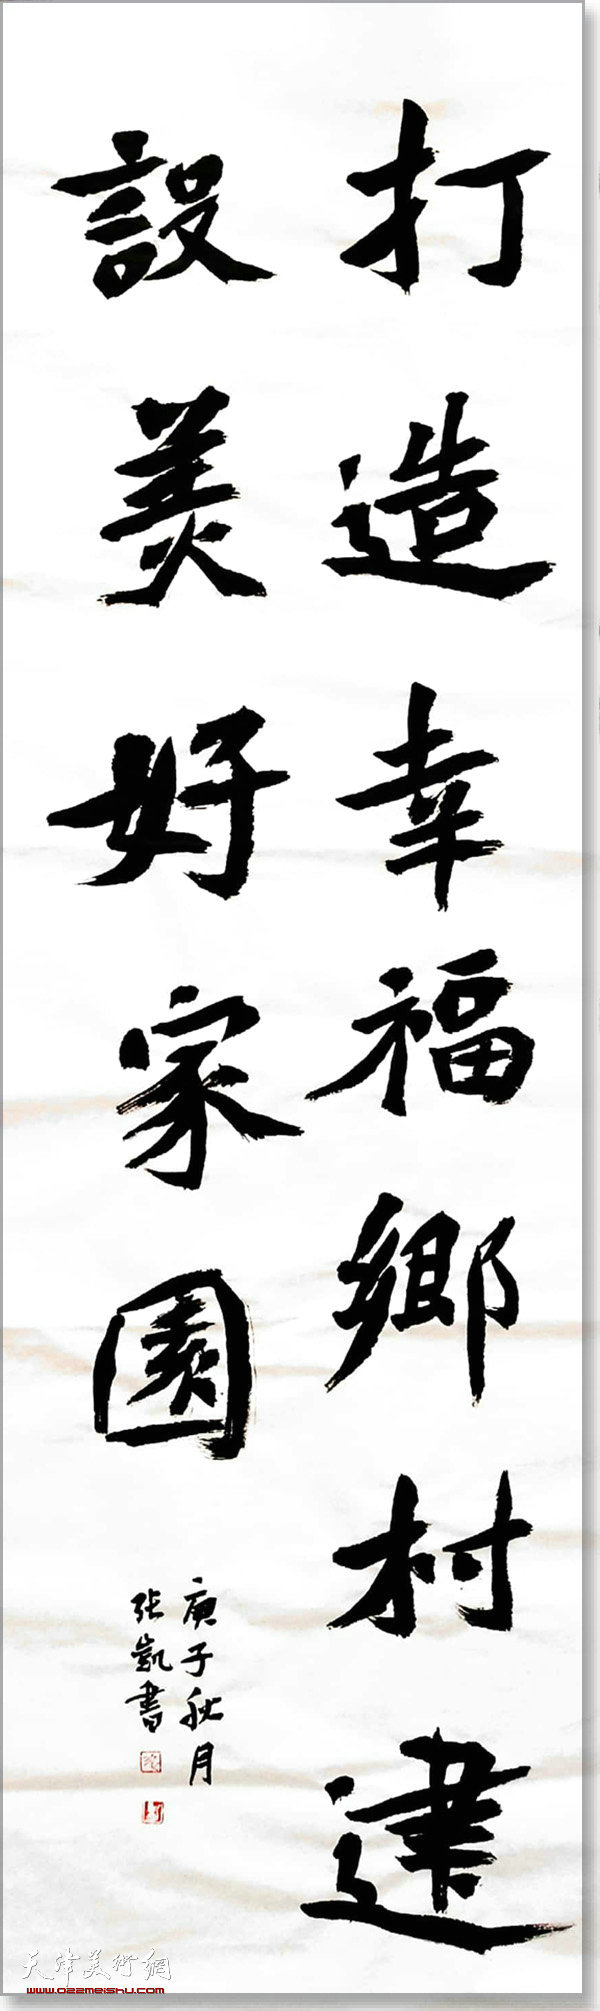 打造幸福鄉村建
設美好家園
庚子秋月
张凱書
天津美術網
www.022meishu.com